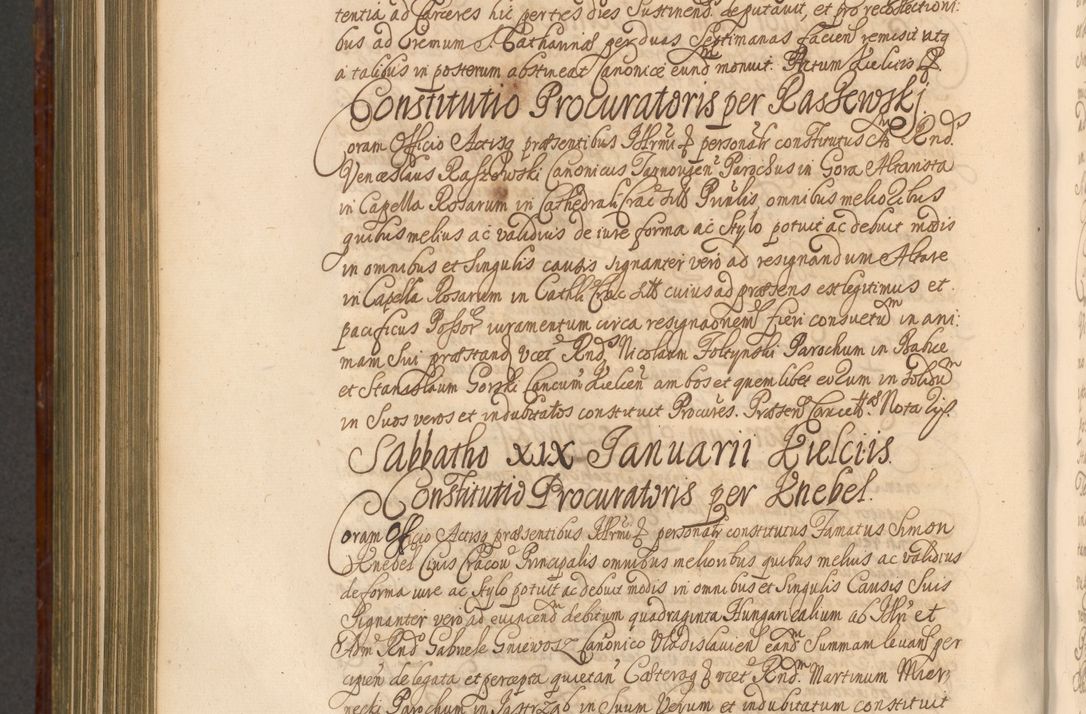 tentia ad Carceres hic per tres dies sustinend deputavit, et pro recollectioni:
bus ad Eremum S. Catharinæ per duas Septimanas facien remisit utq
a talibus in posterum abstineat Canonice eund monuit. Actum Kielciis
Constitutio Procuratoris per Raszewskj.
Coram Officio Actisq præsentibus Illrmi personalr constitutus Adm Rnds
Venceslaus Raszewski Canonicus Tarnoviens Parochus in Gora Altarista
in Capella Rosarum in Cathedrali Crac sub Priulis omnibus melioribus
quibus melius ac validius de iure forma ac stylo potuit ac debuit modis
in omnibus et singulis causis signanter vero ad resignandum Altare
in Capella Rosarum in Cathli Crac sub cuius ad præsens est legitimus et
pacificus Possor iuramentum circa resignaonem fieri consuetum in ani:
mam sui præstand vcet Rnds Nicolaum Foltynski Parochum in Babice
et Stanislaum Gorski Cancum Kielcien ambos et quemlibet eorum in solidum
in suos veros et indubitatos constituit Procures. Præsen Cancell. Nota
Sabbatho XIX Januarii Kielciis.
Constitutio Procuratoris per Knebel.
Coram Officio Actisq præsentibus Illrmi personalr constitutus Famatus Simon
Knebel Civis Cracov Principalis omnibus melioribus quibus melius ac validius
de forma iure ac stylo potuit ac debuit modis in omnibus et singulis Causis suis
signanter vero ad evincend debitum quadraginta Hungaricalium ab Illri et
Adm Rnd Gabriele Gniewosz Canonico Vladislavien eand summam levand per
cipien de legata et percepta quietan Cæteraq vcet Rndm Martinum Mier
necki Parochum in Jastrząb in suum Verum et indubitatum constituit